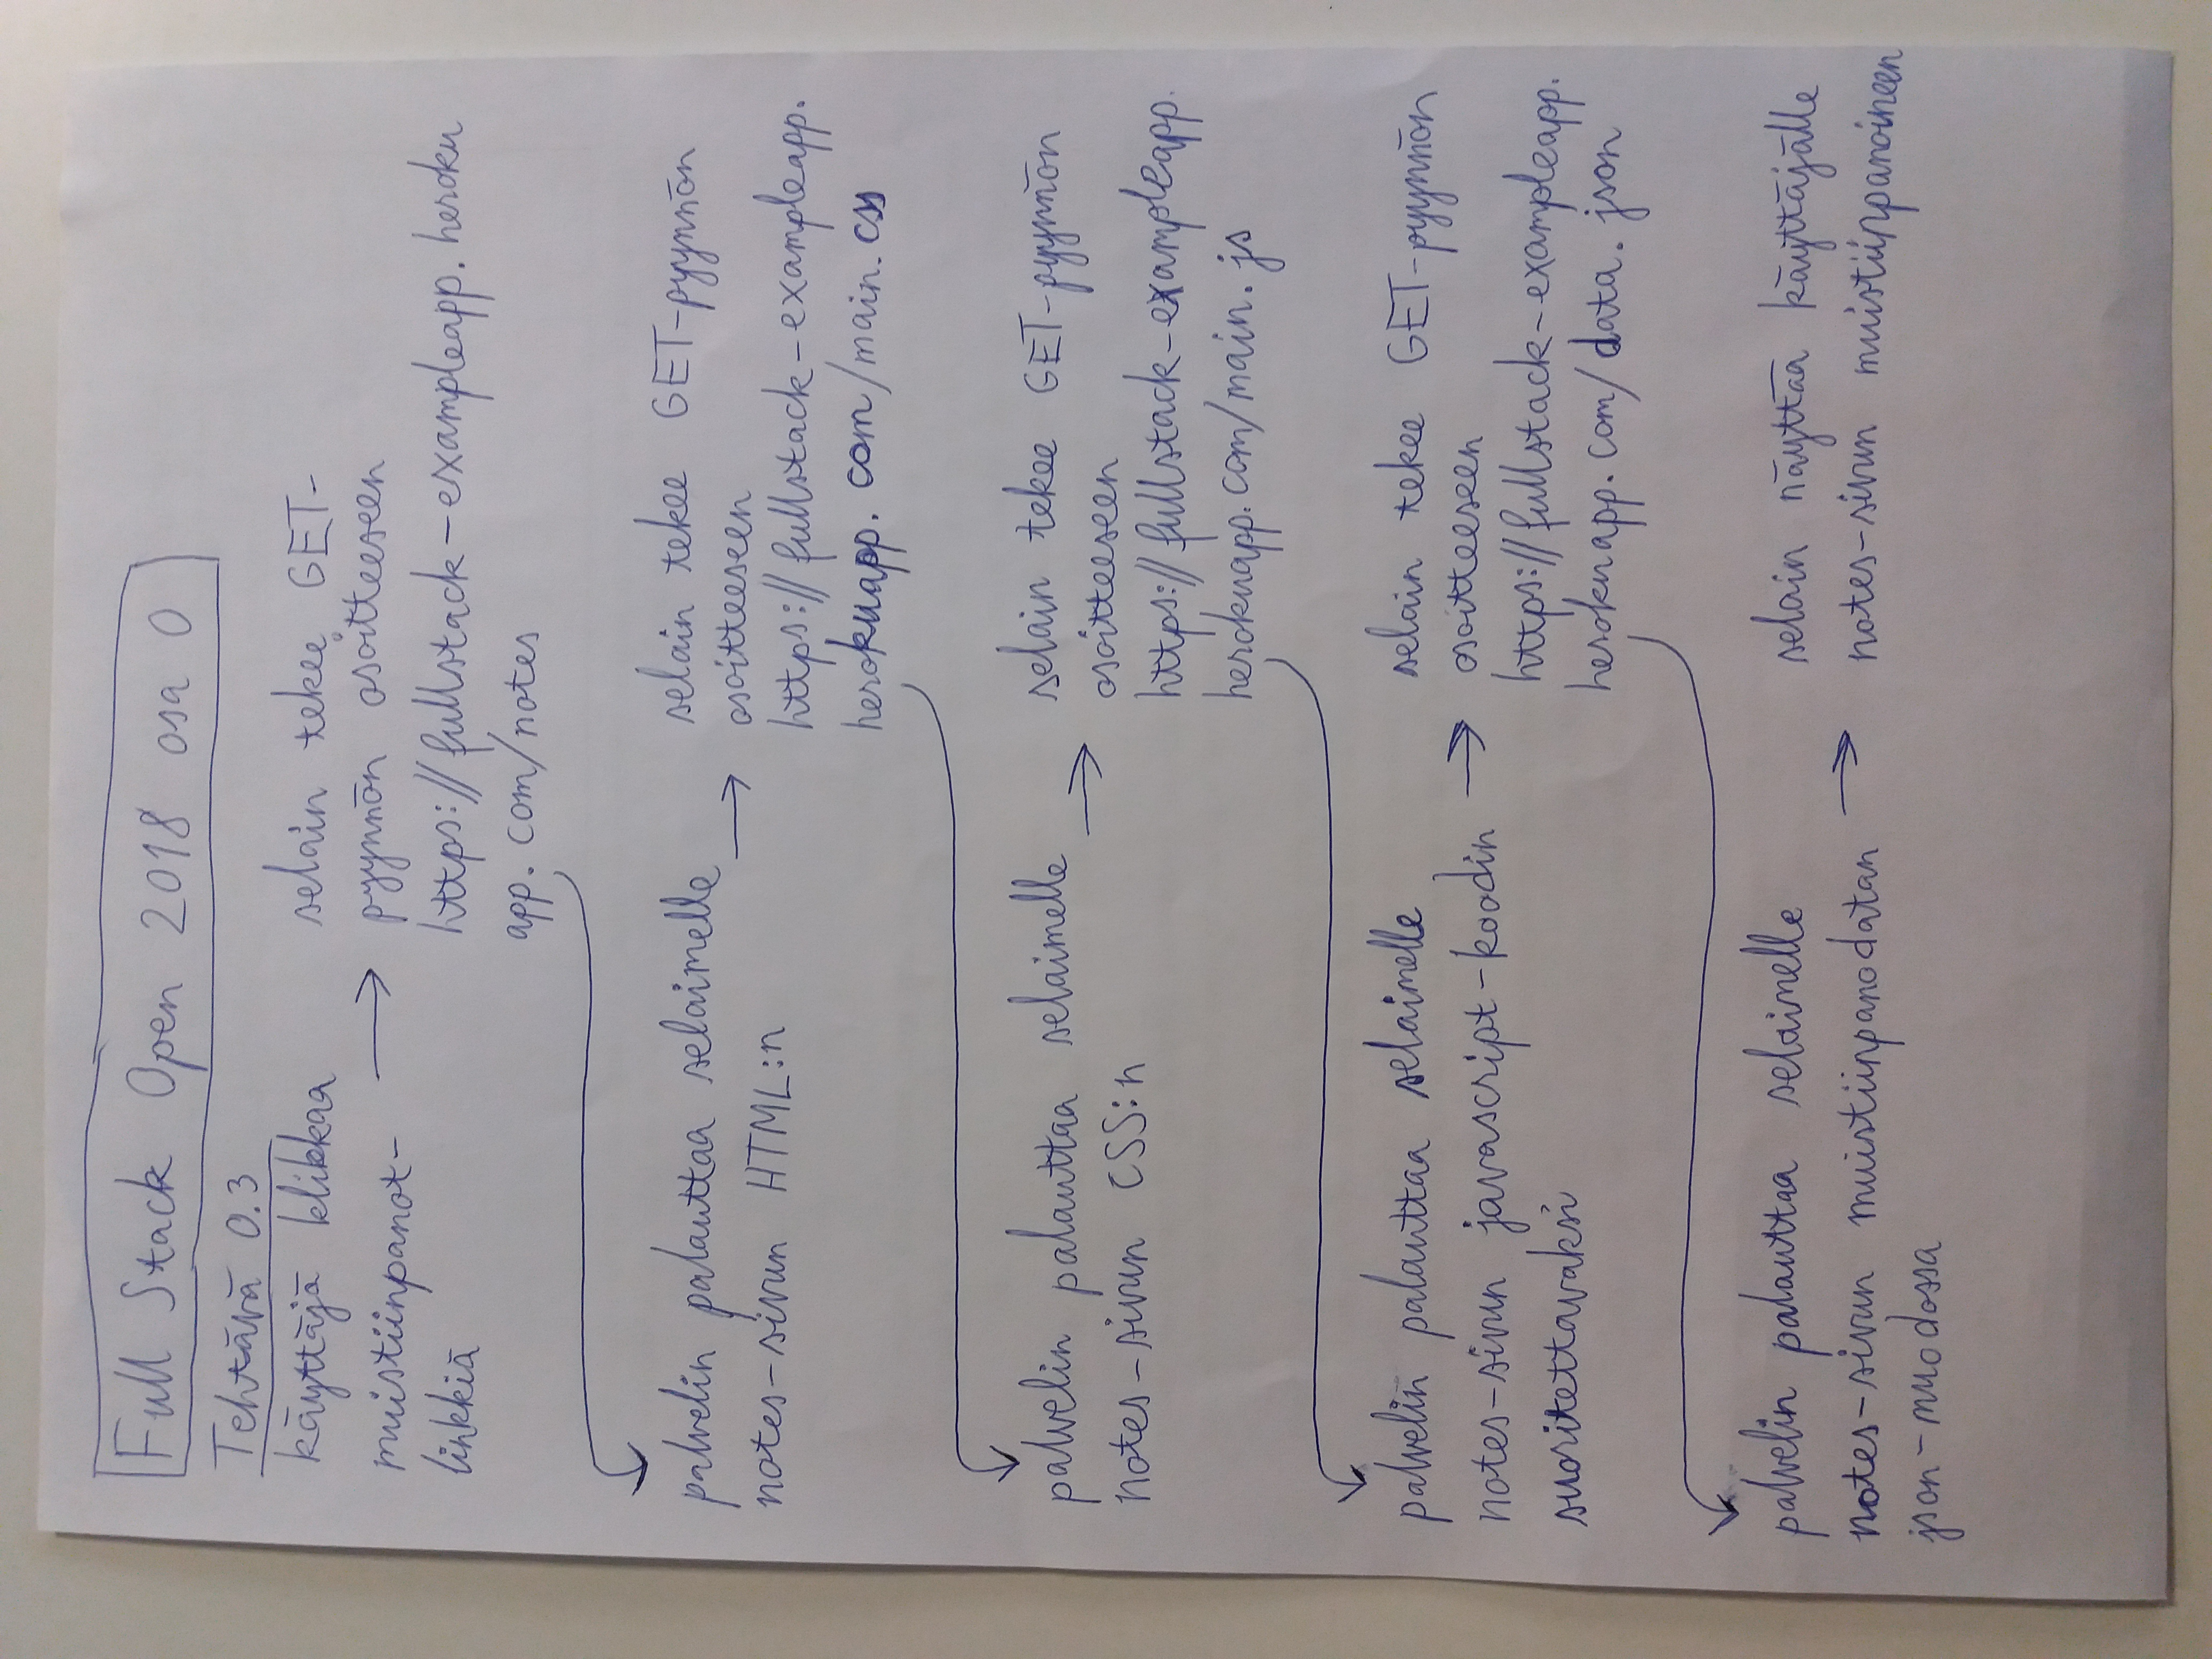 Full Stack Open 2018 osa 0
Tehtävä 0.3
käyttäjä klikkaa
muistiinpanot-
linkkiä
selain tekee GET-
pyynnön osoitteeseen
https://fullstack-exampleapp.heroku
app.com/notes
palvelin palauttaa selaimelle
notes-sivun HTML:n
selain tekee GET-pyynnön
osoitteeseen
https://fullstack-exampleapp.
herokuapp.com/main.css
palvelin palauttaa selaimelle
notes-sivun CSS:n
selain tekee GET-pyynnön
osoitteeseen
https://fullstack-exampleapp.
herokuapp.com/main.js
palvelin palauttaa selaimelle
notes-sivun javascript-koodin
suoritettavaksi
selain tekee GET-pyynnön
osoitteeseen
https://fullstack-exampleapp.
herokuapp.com/data.json
palvelin palauttaa selaimelle
notes-sivun muistiinpanodatan
json-muodossa
selain näyttää käyttäjälle
notes-sivun muistiinpanoineen